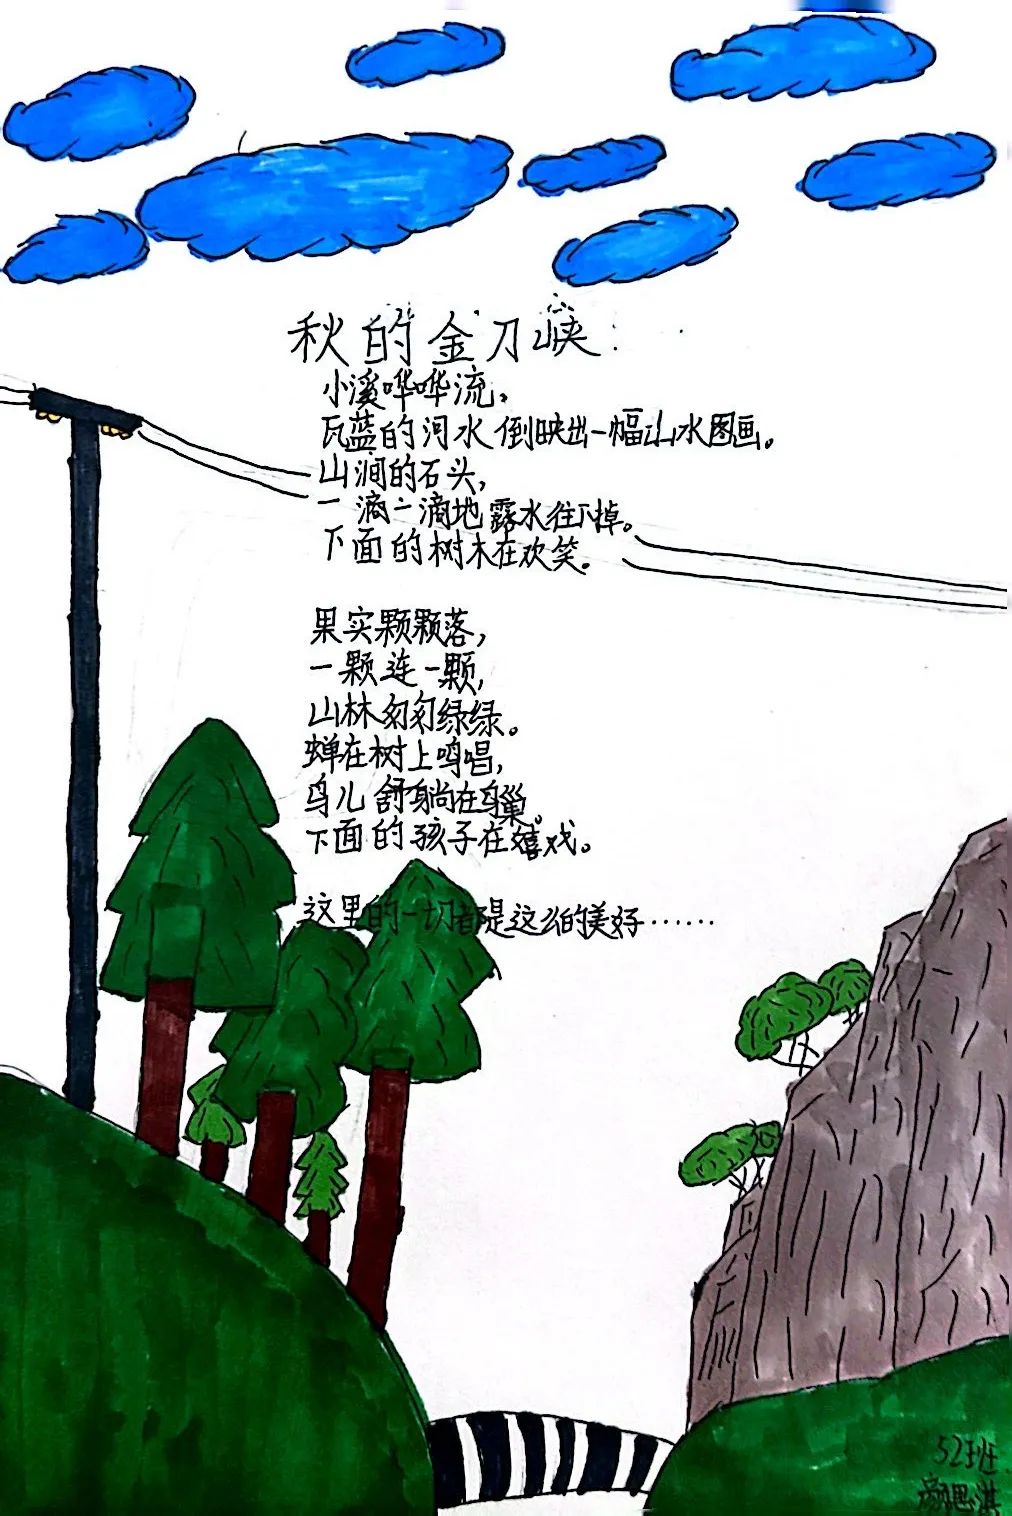 秋的金刀峡
小溪哗哗流。
瓦蓝的河水倒映出一幅山水图画。
山涧的石头,
一滴一滴地露水往下掉。
下面的树木在欢笑。
果实颗颗落,
一颗连一颗,
山林匆匆绿绿。
蝉在树上鸣唱,
鸟儿舒躺在鸟巢。
下面的孩子在嬉戏。
这里的一切都是这么的美好……
52班
思淇